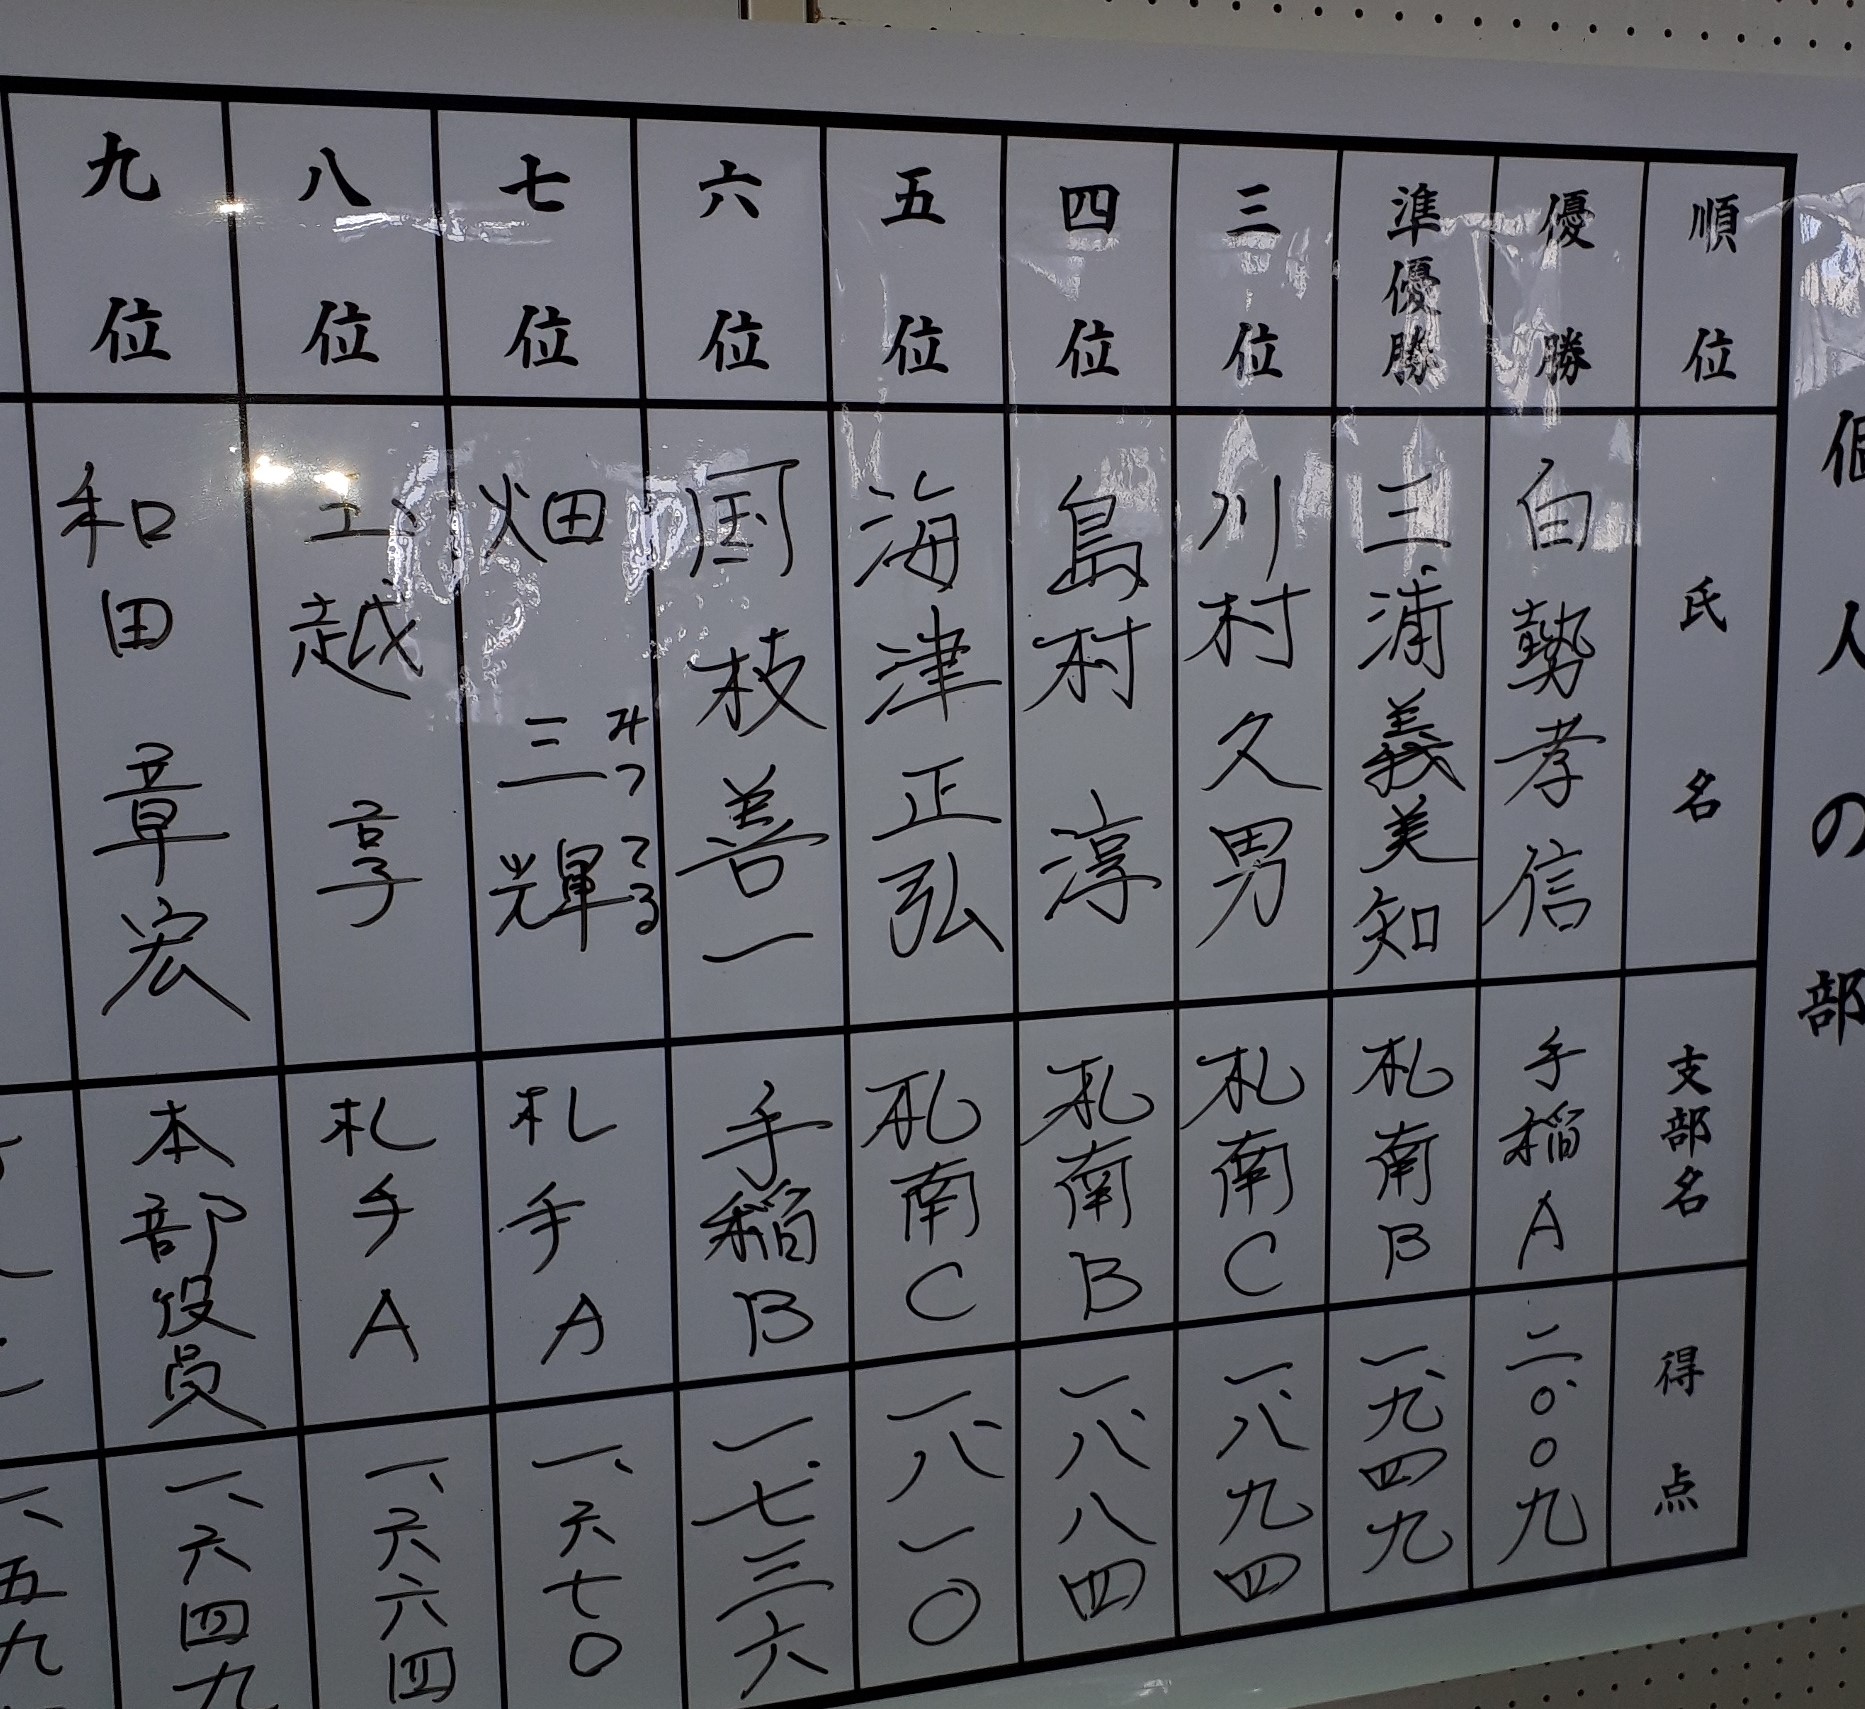 個人の部
順位 氏名 支部名 得点
優勝 白勢孝信 手稲A 二、〇〇九
準優勝 三浦義美知 札南B 一、九四九
三位 川村久男 札南C 一、八九四
四位 島村淳 札南B 一、八八四
五位 海津正弘 札南C 一、八一〇
六位 国枝善一 手稲B 一、七三六
七位 畑三輝 みつてる 札手A 一、六七〇
八位 越享 札手A 一、六六四
九位 和田章宏 本部役員 一、六四九
一、五九